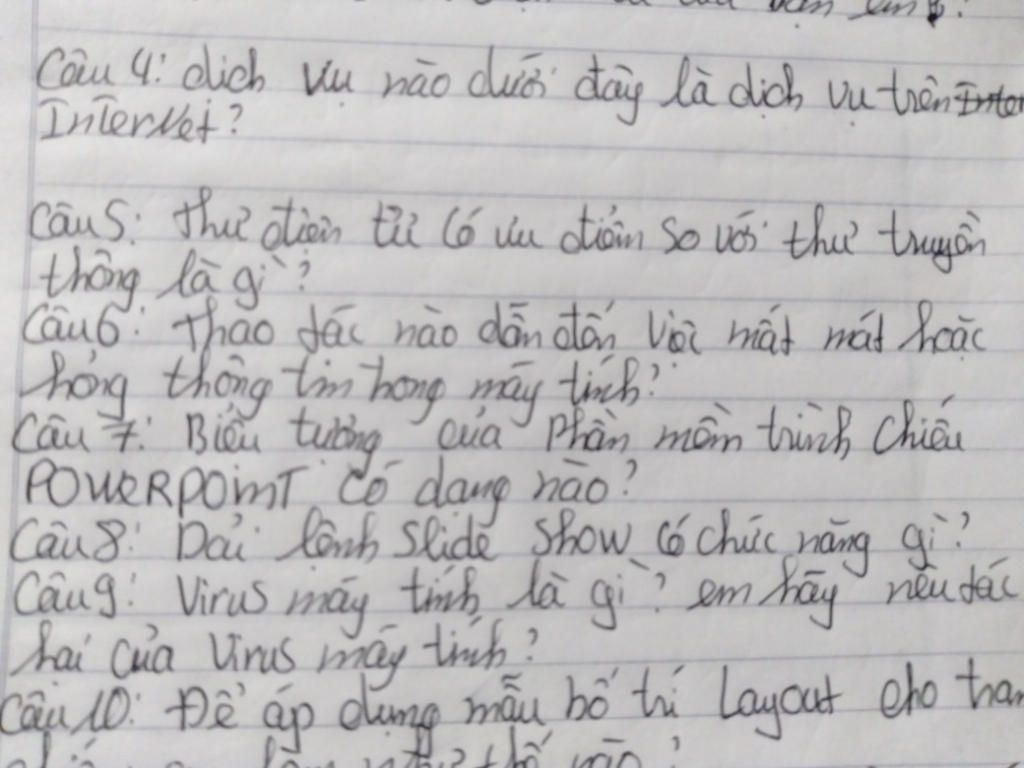 Câu 4: dịch vụ nào dưới đây là dịch vụ trên
Internet?
Câu 5: thư điện tử có ưu điểm so với thư truyền
thông là gì?
Câu 6: thao tác nào dẫn đến việc mất mát hoặc
hỏng thông tin trong máy tính?
Câu 7: Biểu tượng của phần mềm trình chiếu
POWERPOINT có dạng nào?
Câu 8: Dải lệnh Slide Show có chức năng gì?
Câu 9: Virus máy tính là gì? em hãy nêu tác
hại của Virus máy tính?
Câu 10: Để áp dụng mẫu bố trí Layout cho